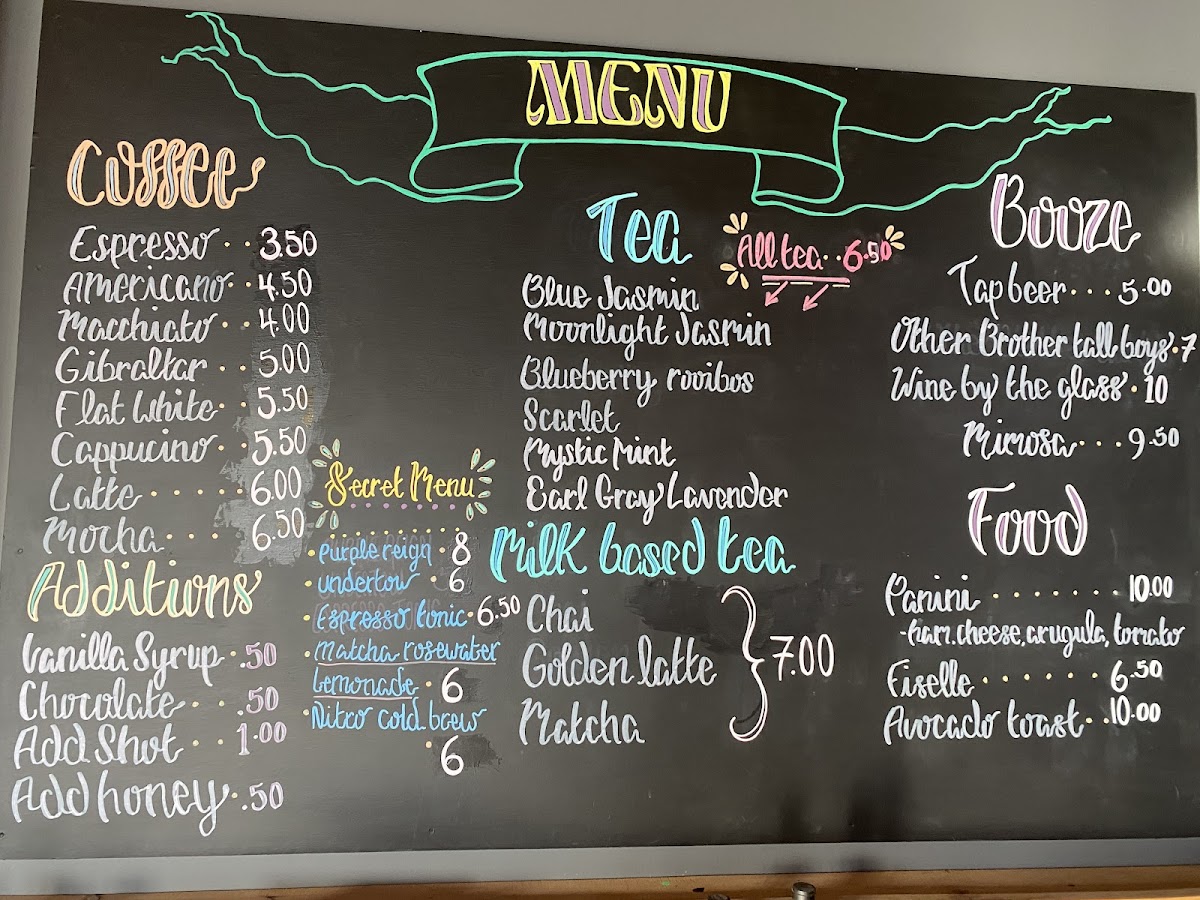 MENU
Coffee
Espresso.. 3.50
Americano.. 4.50
Macchiato.. 4.00
Gibraltar.. 5.00
Flat White.. 5.50
Cappucino.. 5.50
Latte...... 6.00
Mocha.... 6.50
Additions
Vanilla Syrup.. .50
Chocolate.. .50
Add Shot.. 1.00
Add honey.. .50
Secret Menu
Purple reign. 8
undertow. 6
Espresso tonic. 6.50
Matcha rosewater
Lemonade. 6
Nitro cold brew
. 6
Tea
All tea.. 6.50
Blue Jasmin
Moonlight Jasmin
Blueberry rooibos
Scarlet
Mystic Mint
Earl Gray Lavender
Milk based tea
Chai
Golden latte
Matcha
7.00
Booze
Tap beer... 5.00
Other Brother tall boys. 7
Wine by the glass. 10
Mimosa... 9.50
Food
Panini....... 10.00
-ham, cheese, arugula, tomato
Fiselle...... 6.50
Avocado toast.. 10.00